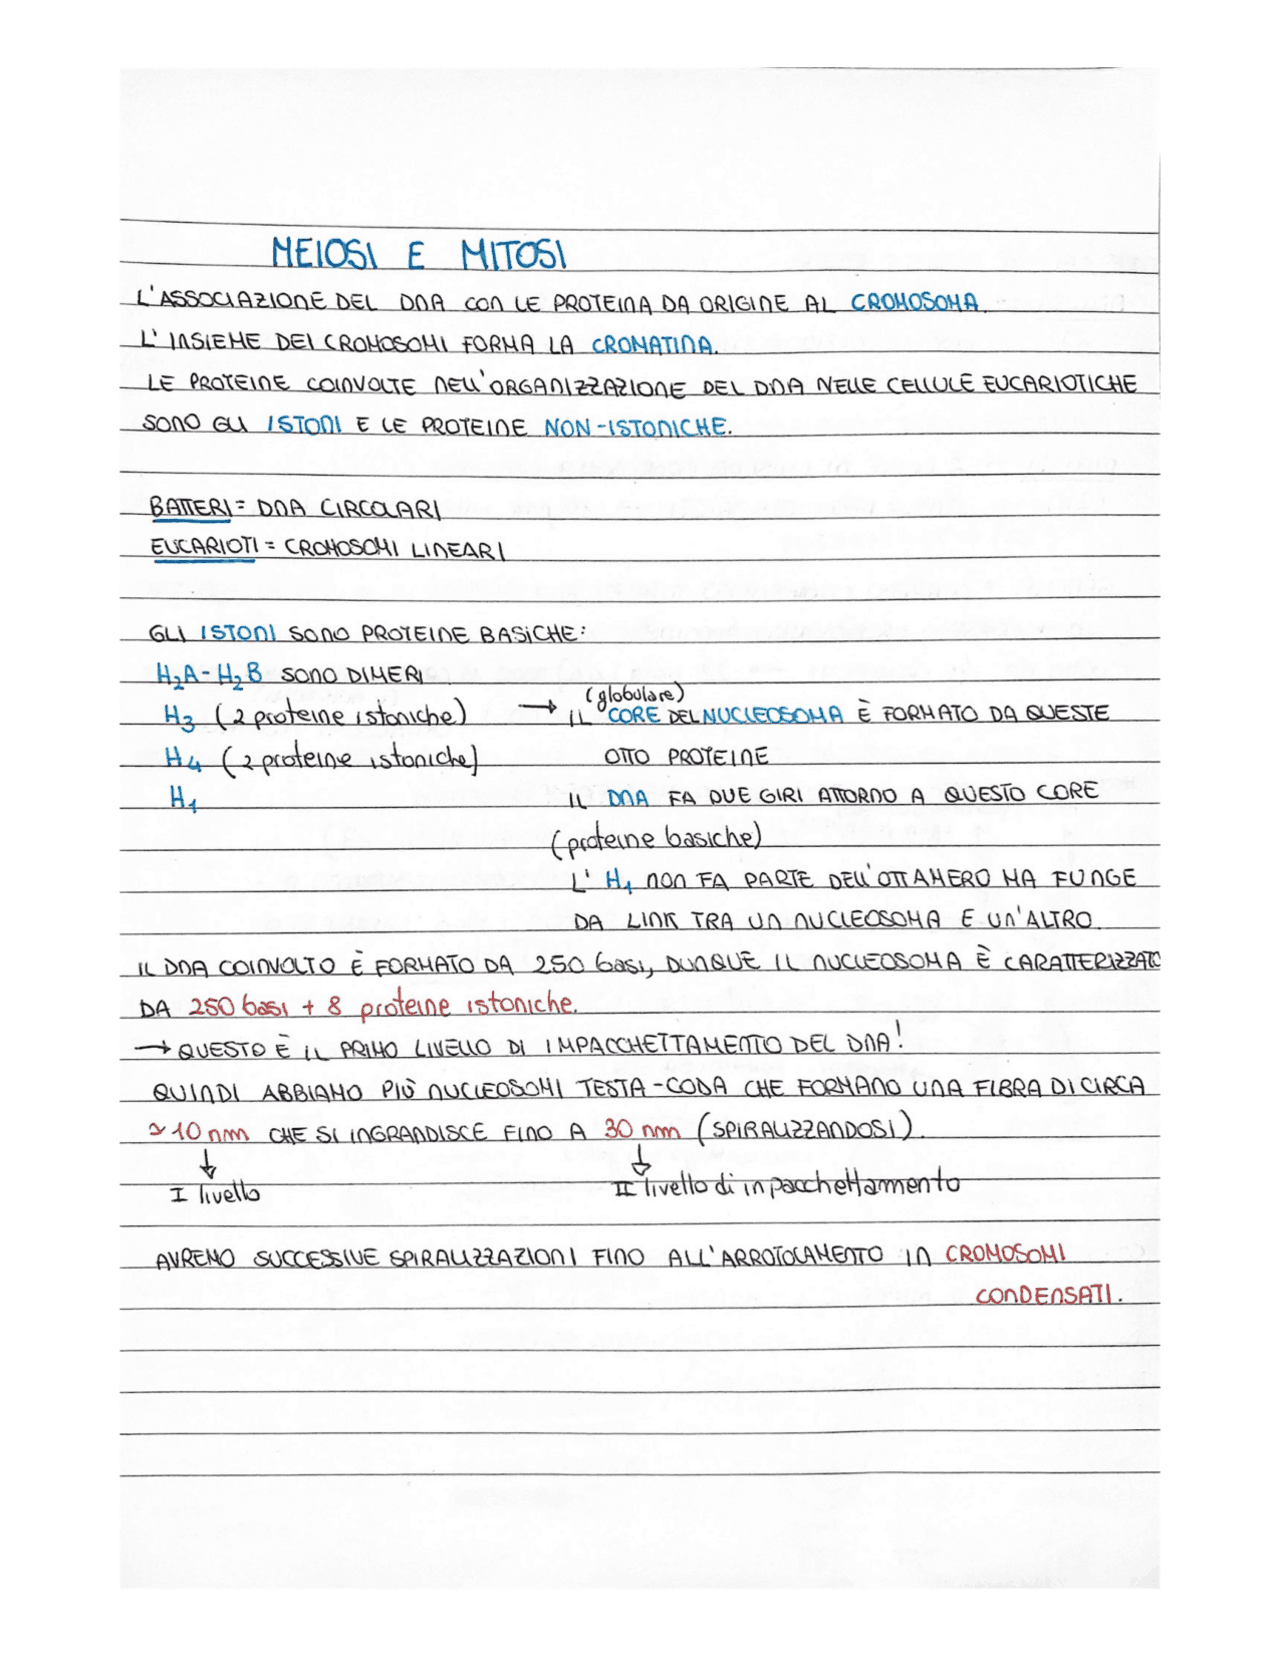 MEIOSI E MITOSI
L'ASSOCIAZIONE DEL DNA CON LE PROTEINA DA ORIGINE AL CROMOSOMA.
L'INSIEME DEI CROMOSOMI FORMA LA CROMATINA.
LE PROTEINE COINVOLTE NELL'ORGANIZZAZIONE DEL DNA NELLE CELLULE EUCARIOTICHE
SONO GLI ISTONI E LE PROTEINE NON-ISTONICHE.
BATTERI = DNA CIRCOLARI
EUCARIOTI = CROMOSOMI LINEARI
GLI ISTONI SONO PROTEINE BASICHE:
H₂A-H₂B SONO DIMERI
(globulare)
H₃ (2 proteine istoniche) → IL CORE DEL NUCLEOSOMA È FORMATO DA QUESTE
H₄ (2 proteine istoniche) OTTO PROTEINE
H₁ IL DNA FA DUE GIRI ATTORNO A QUESTO CORE
(proteine basiche)
L'H₁ NON FA PARTE DELL'OTTAMERO MA FUNGE
DA LINK TRA UN NUCLEOSOMA E UN'ALTRO.
IL DNA COINVOLTO È FORMATO DA 250 basi, DUNQUE IL NUCLEOSOMA È CARATTERIZZATO
DA 250 basi + 8 proteine istoniche.
→ QUESTO È IL PRIMO LIVELLO DI IMPACCHETTAMENTO DEL DNA!
QUINDI ABBIAMO PIÙ NUCLEOSOMI TESTA-CODA CHE FORMANO UNA FIBRA DI CIRCA
~10 nm CHE SI INGRANDISCE FINO A 30 nm (SPIRALIZZANDOSI).
↓ ↓
I livello II livello di inpacchettamento
AVREMO SUCCESSIVE SPIRALIZZAZIONI FINO ALL'ARROTOLAMENTO IN CROMOSOMI
CONDENSATI.